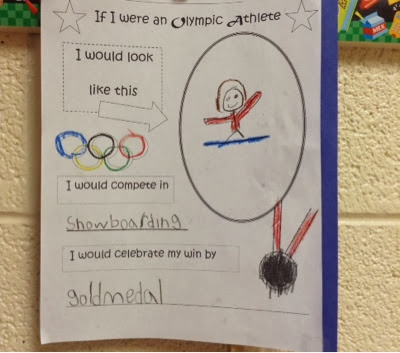 If I were an Olympic Athlete
I would look
like this
I would compete in
Snowboarding
I would celebrate my win by
goldmedal